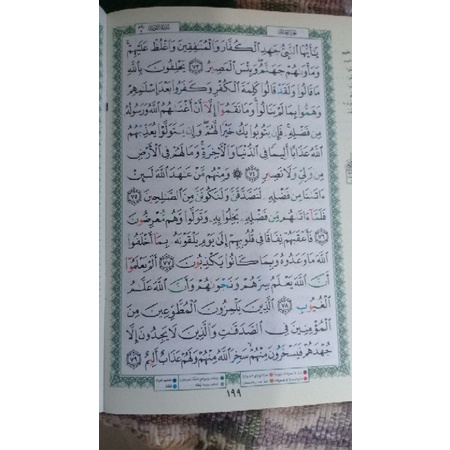 يَٰٓأَيُّهَا ٱلنَّبِىُّ جَٰهِدِ ٱلْكُفَّارَ وَٱلْمُنَٰفِقِينَ وَٱغْلُظْ عَلَيْهِمْ
وَمَأْوَىٰهُمْ جَهَنَّمُ وَبِئْسَ ٱلْمَصِيرُ ٧٣ يَحْلِفُونَ بِٱللَّهِ
مَا قَالُوا۟ وَلَقَدْ قَالُوا۟ كَلِمَةَ ٱلْكُفْرِ وَكَفَرُوا۟ بَعْدَ إِسْلَٰمِهِمْ
وَهَمُّوا۟ بِمَا لَمْ يَنَالُوا۟ وَمَا نَقَمُوٓا۟ إِلَّآ أَنْ أَغْنَىٰهُمُ ٱللَّهُ وَرَسُولُهُۥ
مِن فَضْلِهِۦ فَإِن يَتُوبُوا۟ يَكُ خَيْرًا لَّهُمْ وَإِن يَتَوَلَّوْا۟ يُعَذِّبْهُمُ
ٱللَّهُ عَذَابًا أَلِيمًا فِى ٱلدُّنْيَا وَٱلْءَاخِرَةِ وَمَا لَهُمْ فِى ٱلْأَرْضِ
مِن وَلِىٍّ وَلَا نَصِيرٍ ٧٤ ۞ وَمِنْهُم مَّنْ عَٰهَدَ ٱللَّهَ لَئِنْ
ءَاتَىٰنَا مِن فَضْلِهِۦ لَنَصَّدَّقَنَّ وَلَنَكُونَنَّ مِنَ ٱلصَّٰلِحِينَ ٧٥
فَلَمَّآ ءَاتَىٰهُم مِّن فَضْلِهِۦ بَخِلُوا۟ بِهِۦ وَتَوَلَّوا۟ وَّهُم مُّعْرِضُونَ
٧٦ فَأَعْقَبَهُمْ نِفَاقًا فِى قُلُوبِهِمْ إِلَىٰ يَوْمِ يَلْقَوْنَهُۥ بِمَآ أَخْلَفُوا۟
ٱللَّهَ مَا وَعَدُوهُ وَبِمَا كَانُوا۟ يَكْذِبُونَ ٧٧ أَلَمْ يَعْلَمُوٓا۟
أَنَّ ٱللَّهَ يَعْلَمُ سِرَّهُمْ وَنَجْوَىٰهُمْ وَأَنَّ ٱللَّهَ عَلَّٰمُ
ٱلْغُيُوبِ ٧٨ ٱلَّذِينَ يَلْمِزُونَ ٱلْمُطَّوِّعِينَ مِنَ
ٱلْمُؤْمِنِينَ فِى ٱلصَّدَقَٰتِ وَٱلَّذِينَ لَا يَجِدُونَ إِلَّا
جُهْدَهُمْ فَيَسْخَرُونَ مِنْهُمْ سَخِرَ ٱللَّهُ مِنْهُمْ وَلَهُمْ عَذَابٌ أَلِيمٌ ٧٩
١٩٩